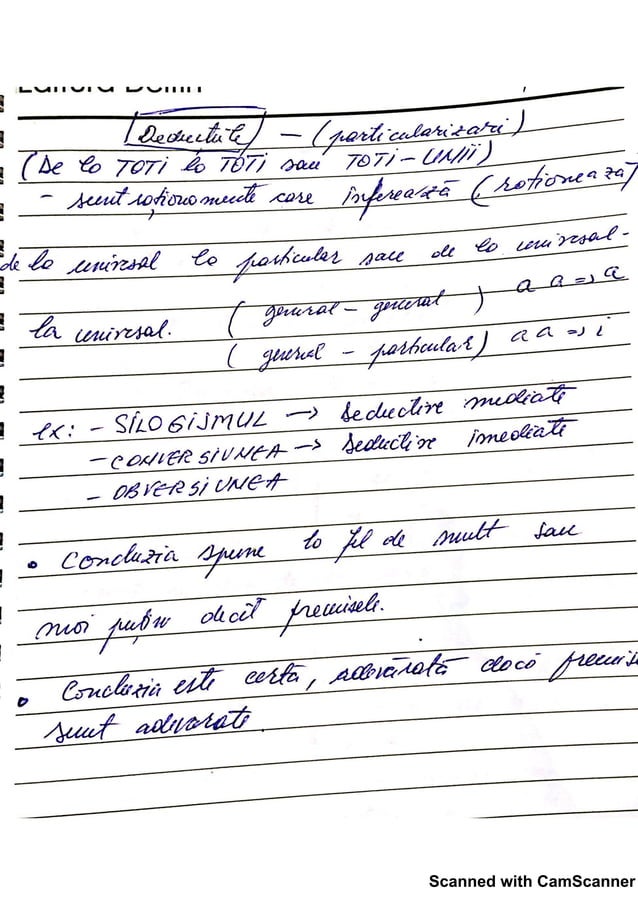 Deductiile – (particularizari)
(De la TOTI la TOTI sau TOTI – UNII)
- sunt raționamente care inferează (raționează)
de la universal la particular sau de la universal -
la universal. (general – general) a a => a
(general – particular) a a => i
ex: - SILOGISMUL → deductive mediate
- CONVERSIUNEA → deductive imediate
- OBVERSIUNEA
• Concluzia spune la fel de mult sau
mai puțin decît premisele.
• Concluzia este certă, adevărată dacă premise
sunt adevarate.
Scanned with CamScanner